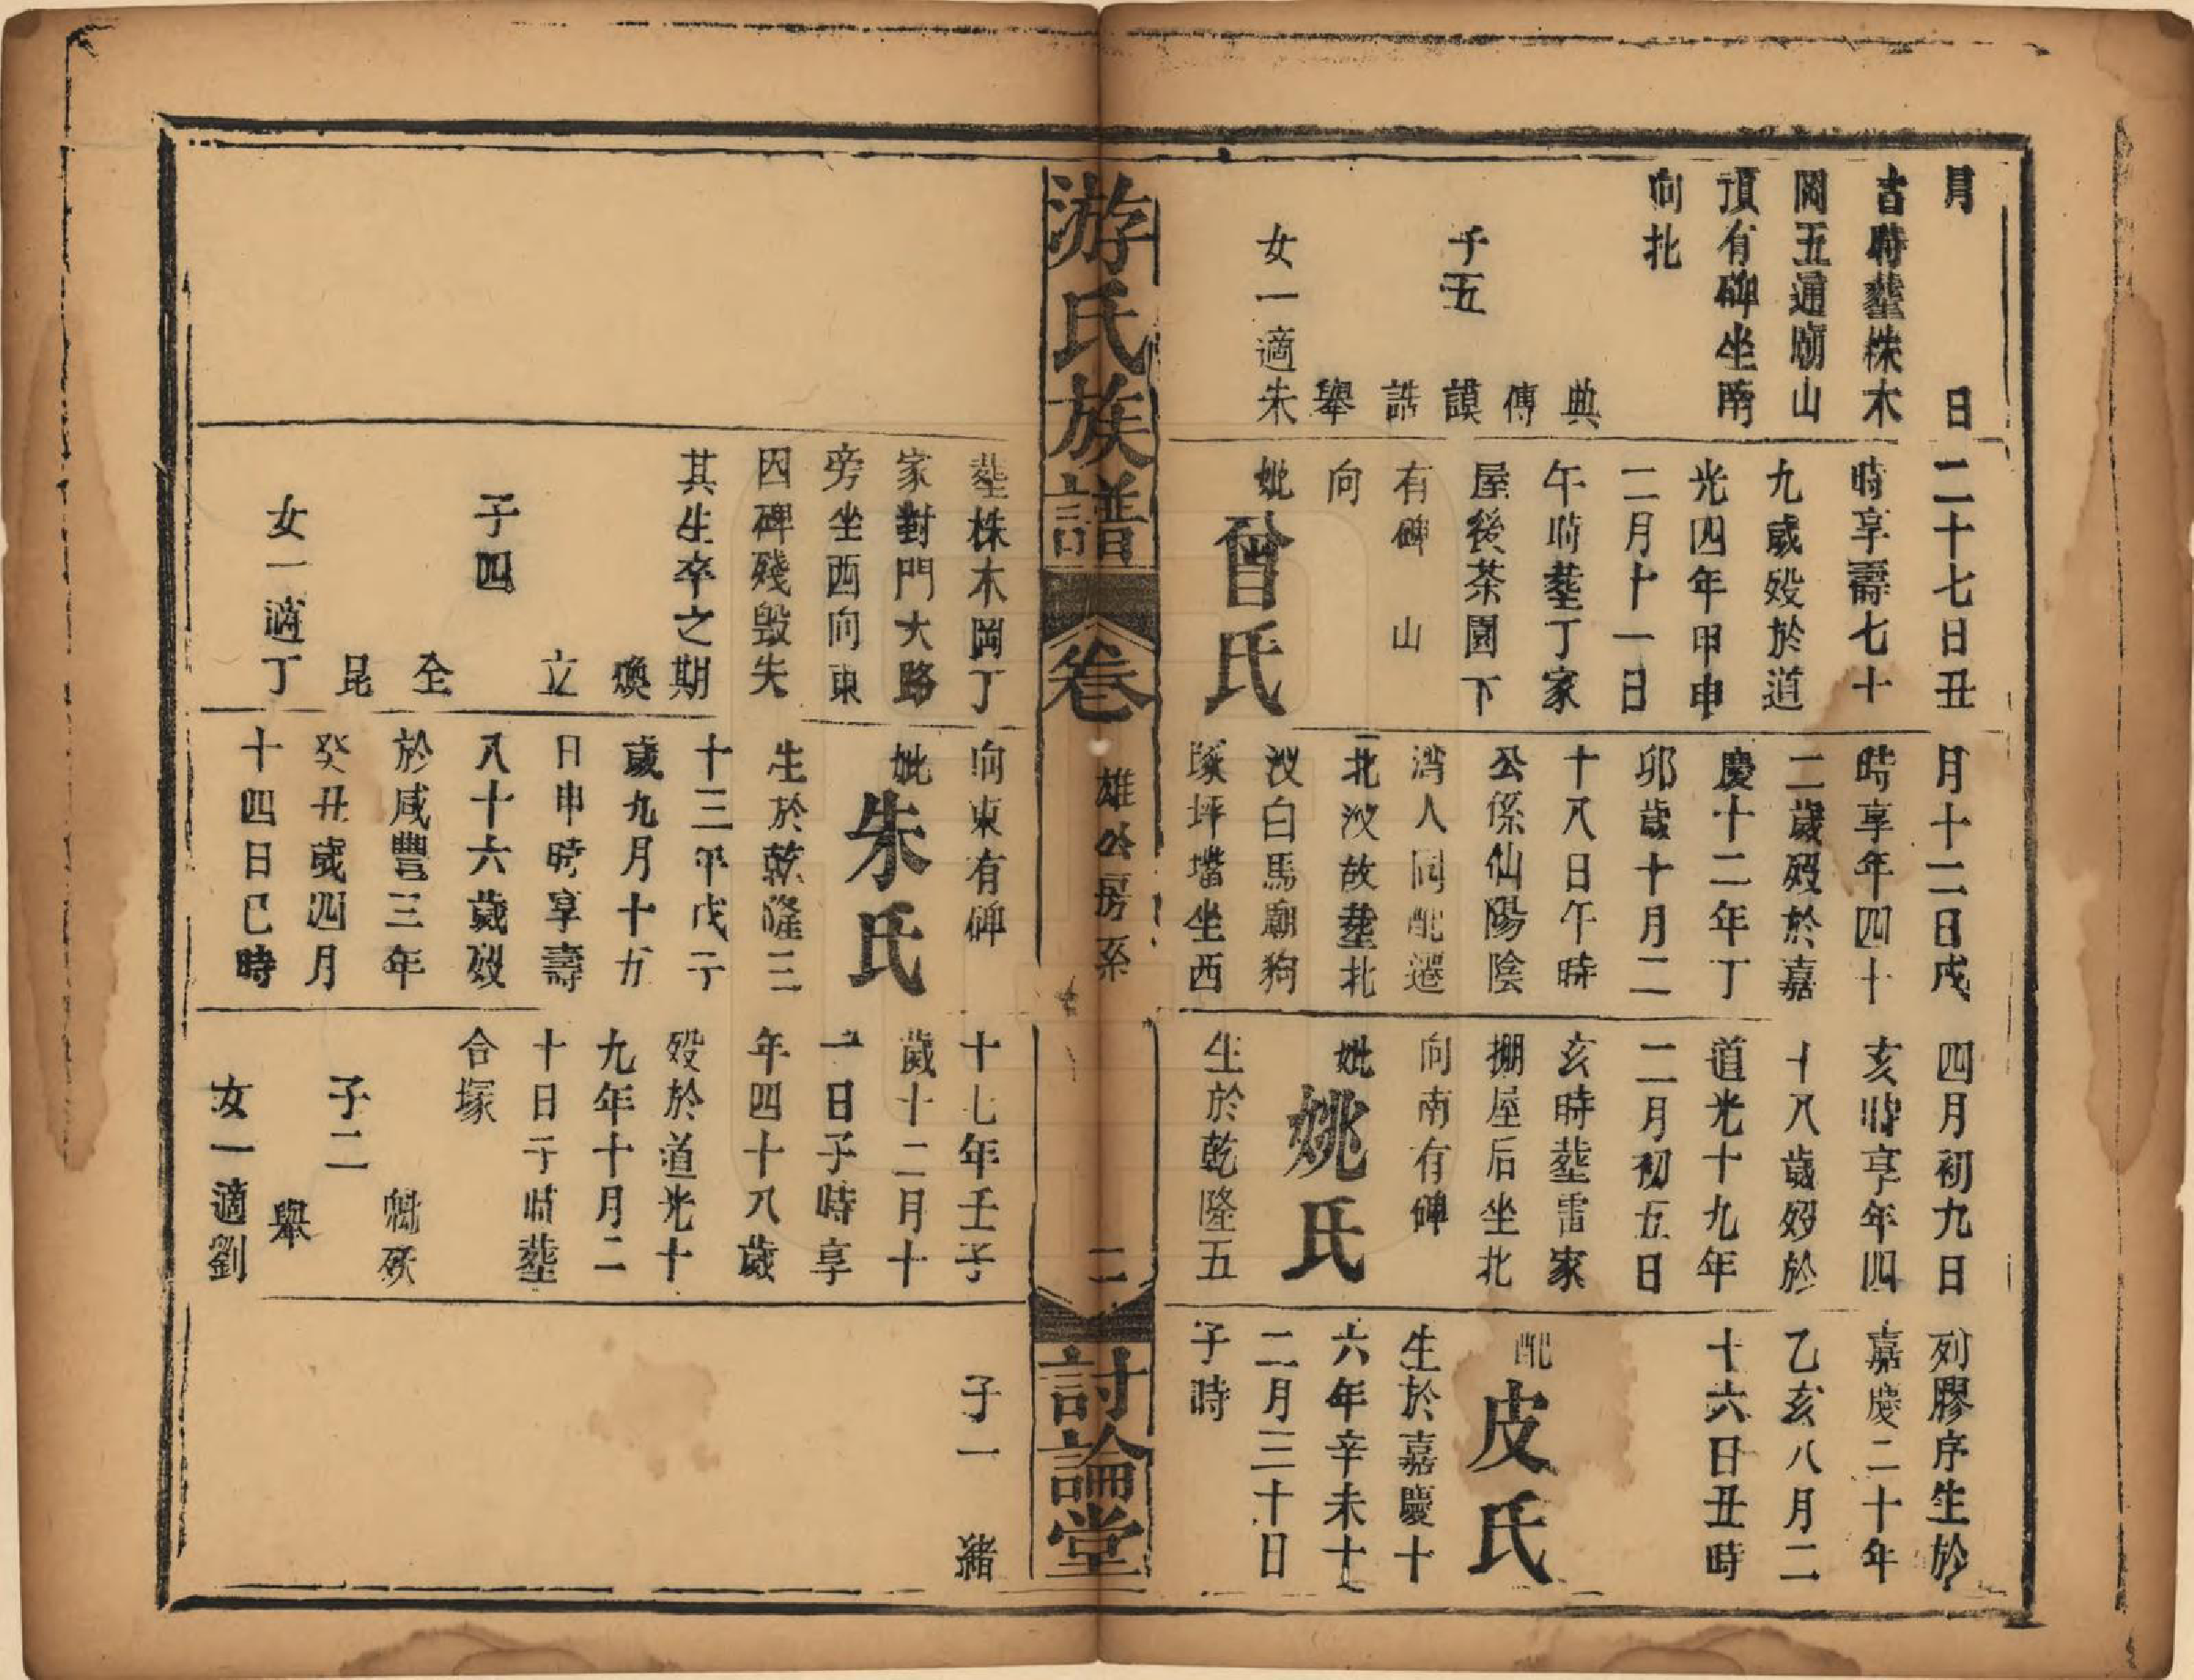 月　　日
吉時葬株木
岡五通廟山
頂有碑坐南
向北
典
傅
子五　謨
誥
舉
女一適朱
二十七日丑
時享壽七十
九歲歿於道
光四年甲申
二月十一日
午時葬丁家
屋後茶園下
有碑　山
向
妣曾氏
月十二日戌
時享年四十
二歲歿於嘉
慶十二年丁
卯歲十月二
十八日午時
公係仙陽陰
灣人同配遷
北汊故葬北
汊白馬廟狗
塚坪壋坐西
四月初九日
亥時享年四
十八歲歿於
道光十九年
二月初五日
亥時葬雷家
掤屋后坐北
向南有碑
妣姚氏
生於乾隆五
列膠序生於
嘉慶二十年
乙亥八月二
十六日丑時
配皮氏
生於嘉慶十
六年辛未十
二月三十日
子時
游氏族譜
卷
雄公房系
二
討論堂
葬株木岡丁
家對門大路
旁坐西向東
因碑殘毀失
其生卒之期
煥
立
子四
全
昆
女一適丁
向東有碑
妣朱氏
生於乾隆三
十三年戊子
歲九月十五
日申時享壽
八十六歲歿
於咸豐三年
癸丑歲四月
十四日巳時
十七年壬子
歲十二月十
一日子時享
年四十八歲
歿於道光十
九年十月二
十日子時葬
合塚
殀
子二
舉
女一適劉
子一　緒